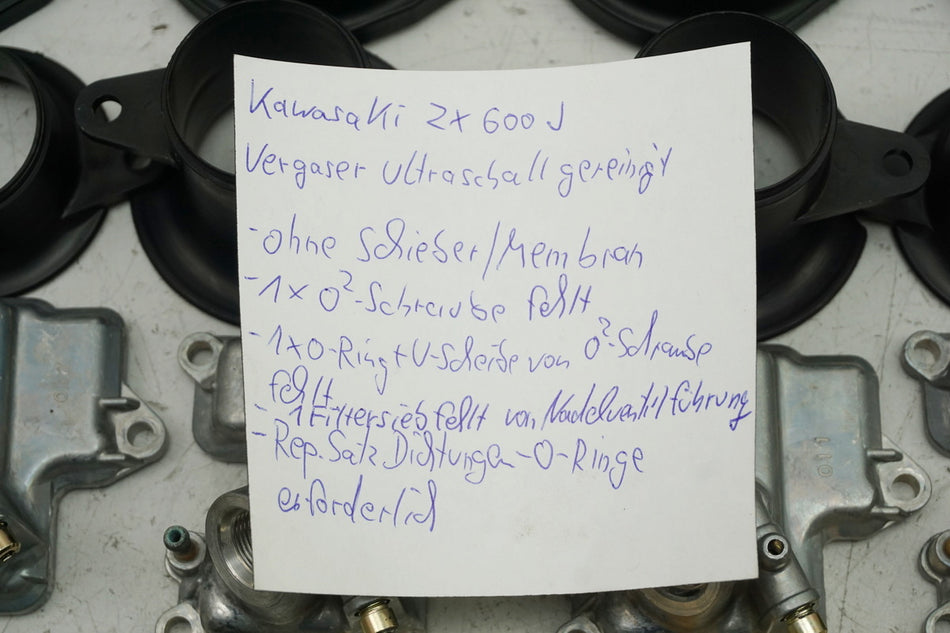 Kawasaki ZX 600 J
Vergaser Ultraschall gereinigt
- ohne Schieber/Membran
- 1x O²-Schraube fehlt
- 1x O-Ring + U-Scheibe von O²-Schraube
fehlt
- 1 Filtersieb fehlt von Nadelventilführung
- Rep. Satz Dichtungen-O-Ringe
erforderlich
011